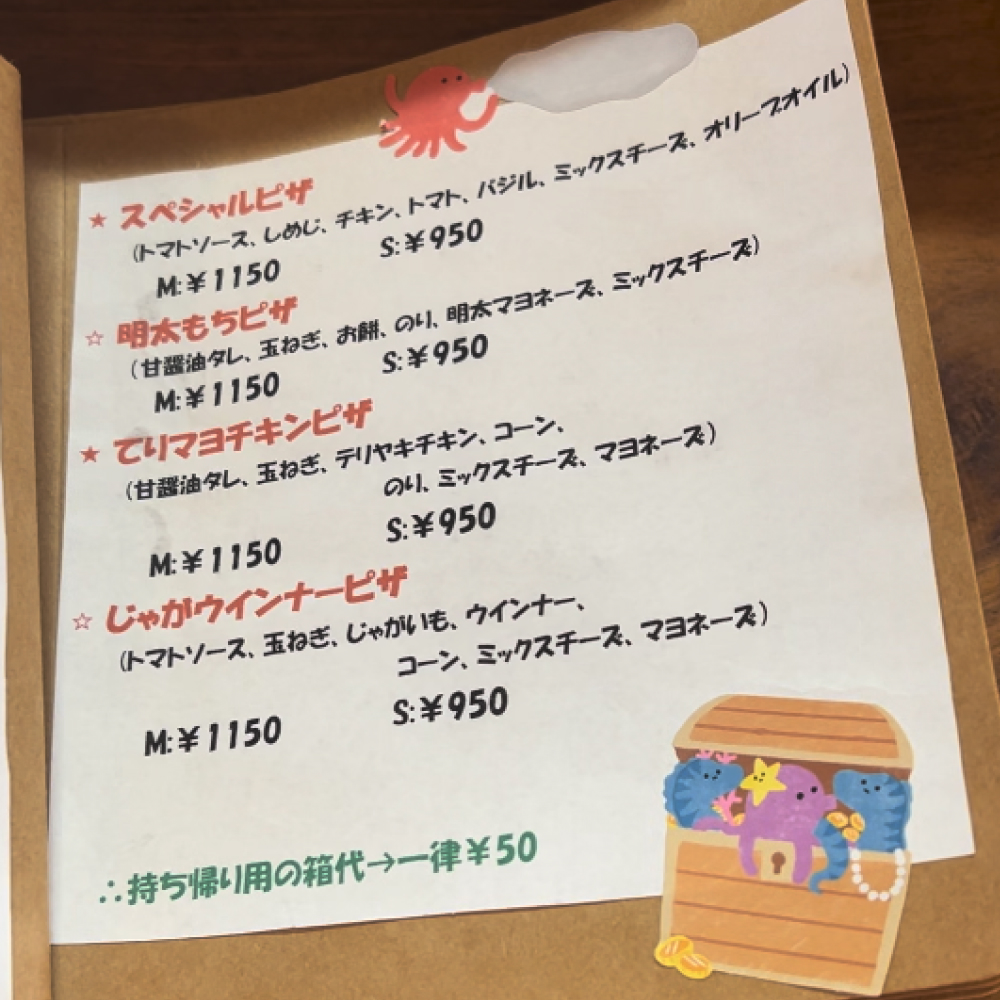 ★ スペシャルピザ
(トマトソース、しめじ、チキン、トマト、バジル、ミックスチーズ、オリーブオイル)
M:¥1150 S:¥950
☆ 明太もちピザ
(甘醤油タレ、玉ねぎ、お餅、のり、明太マヨネーズ、ミックスチーズ)
M:¥1150 S:¥950
★ てりマヨチキンピザ
(甘醤油タレ、玉ねぎ、テリヤキチキン、コーン、
のり、ミックスチーズ、マヨネーズ)
M:¥1150 S:¥950
☆ じゃがウインナーピザ
(トマトソース、玉ねぎ、じゃがいも、ウインナー、
コーン、ミックスチーズ、マヨネーズ)
M:¥1150 S:¥950
∴持ち帰り用の箱代→一律¥50